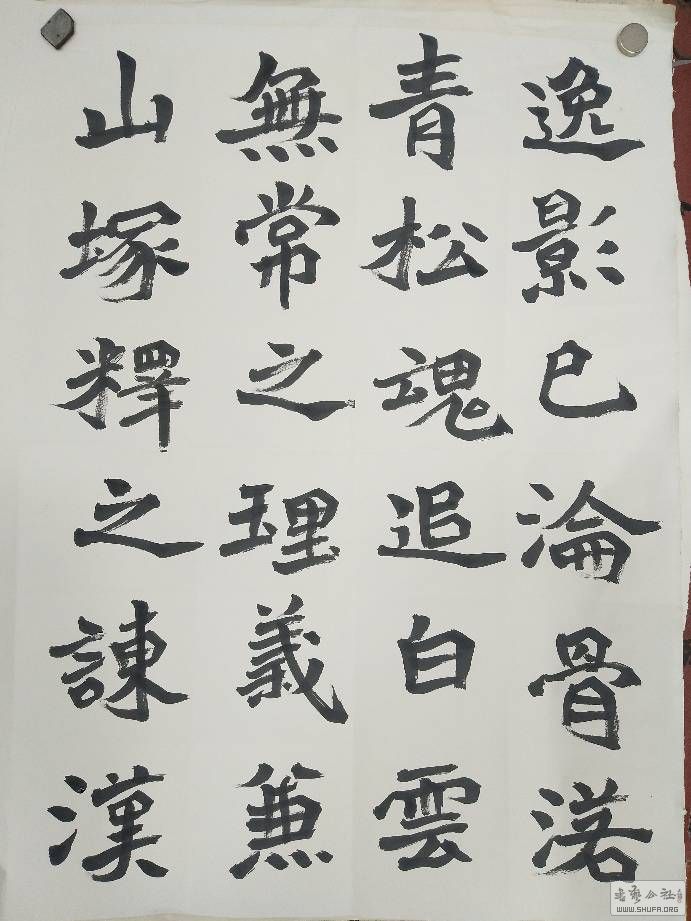 逸影已淪骨落
青松魂追白雲
無常之理義兼
山塚釋之諫漢
WWW.SHUFA.ORG